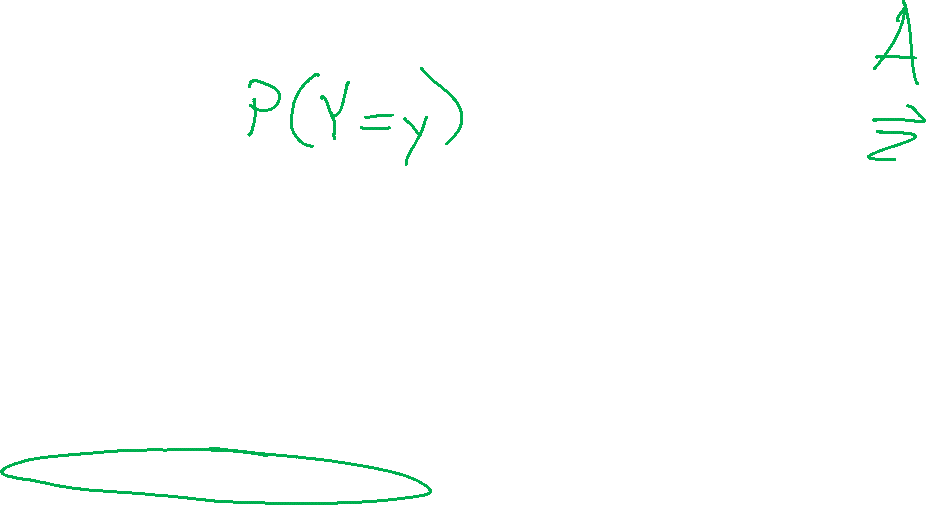 P(Y=y)
A